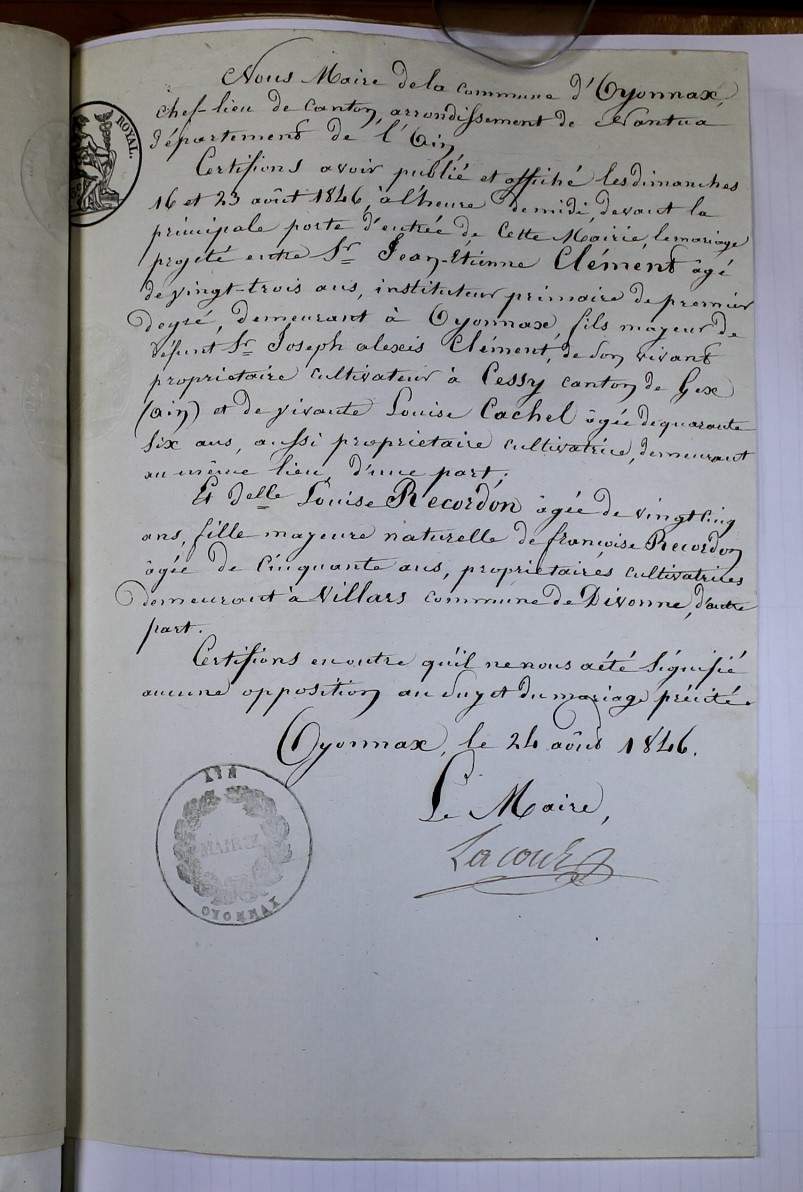 Nous Maire de la commune d'Oyonnax,
chef-lieu de canton, arrondissement de Nantua
département de l'Ain,
ROYAL.
Certifions avoir publié et affiché les dimanches
16 et 23 août 1846, à l'heure de midi, devant la
principale porte d'entrée de Cette Mairie, le mariage
projeté entre Sr Jean-Etienne Clément âgé
de vingt-trois ans, instituteur primaire de premier
degré, demeurant à Oyonnax, fils majeur de
défunt Sr Joseph alexis Clément, de son vivant
propriétaire cultivateur à Cessy canton de Gex
(ain) et de vivante Louise Cachel âgée de quarante
six ans, aussi propriétaire cultivatrice, demeurant
au même lieu d'une part;
Et delle Louise Recordon âgée de vingt cinq
ans, fille majeure naturelle de françoise Recordon
âgée de cinquante ans, propriétaires cultivatrices
demeurant à Villars commune de Divonne, d'autre
part.
Certifions en outre qu'il ne nous a été signifié
aucune opposition au sujet du mariage précité.
Oyonnax, le 24 août 1846.
Le Maire,
Lacour
AIN
MAIRIE
OYONNAX